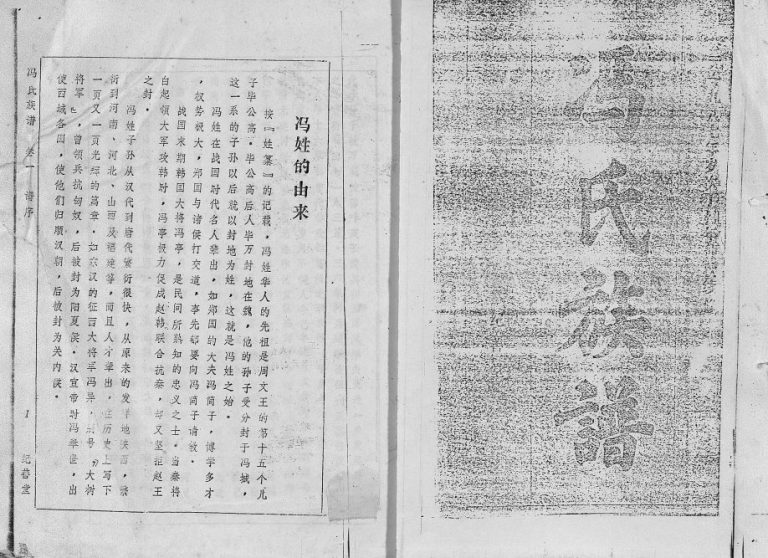 冯氏族譜
冯姓的由来
按『姓纂』的记载，冯姓华人的先祖是周文王的第十五个儿
子毕公高。毕公高后人毕万封地在魏，他的孙子受分封于冯城，
这一系的子孙以后就以封地为姓，这就是冯姓之始。
冯姓在战国时代名人辈出，如郑国的大夫冯简子，博学多才
，权势极大，郑国与诸侯打交道，事先都要向冯简子请教。
战国末期韩国大将冯亭，是民间所熟知的忠义之士。当秦将
白起领大军攻韩时，冯亭极力促成赵韩联合抗秦，却又坚拒赵王
之封。
冯姓子孙从汉代到唐代繁衍很快，从原来的发祥地陕西，繁
衍到河南、河北、山西及福建等，而且人才辈出，在历史上写下
一页又一页光辉的篇章。如东汉的征西大将军冯异，号 大树
将军』，曾领兵抗匈奴，后被封为阳夏侯。汉宣帝时冯奉世，出
使西域各国，使他们归顺汉朝，后被封为关内侯。
冯氏族谱 卷一 谱序 1